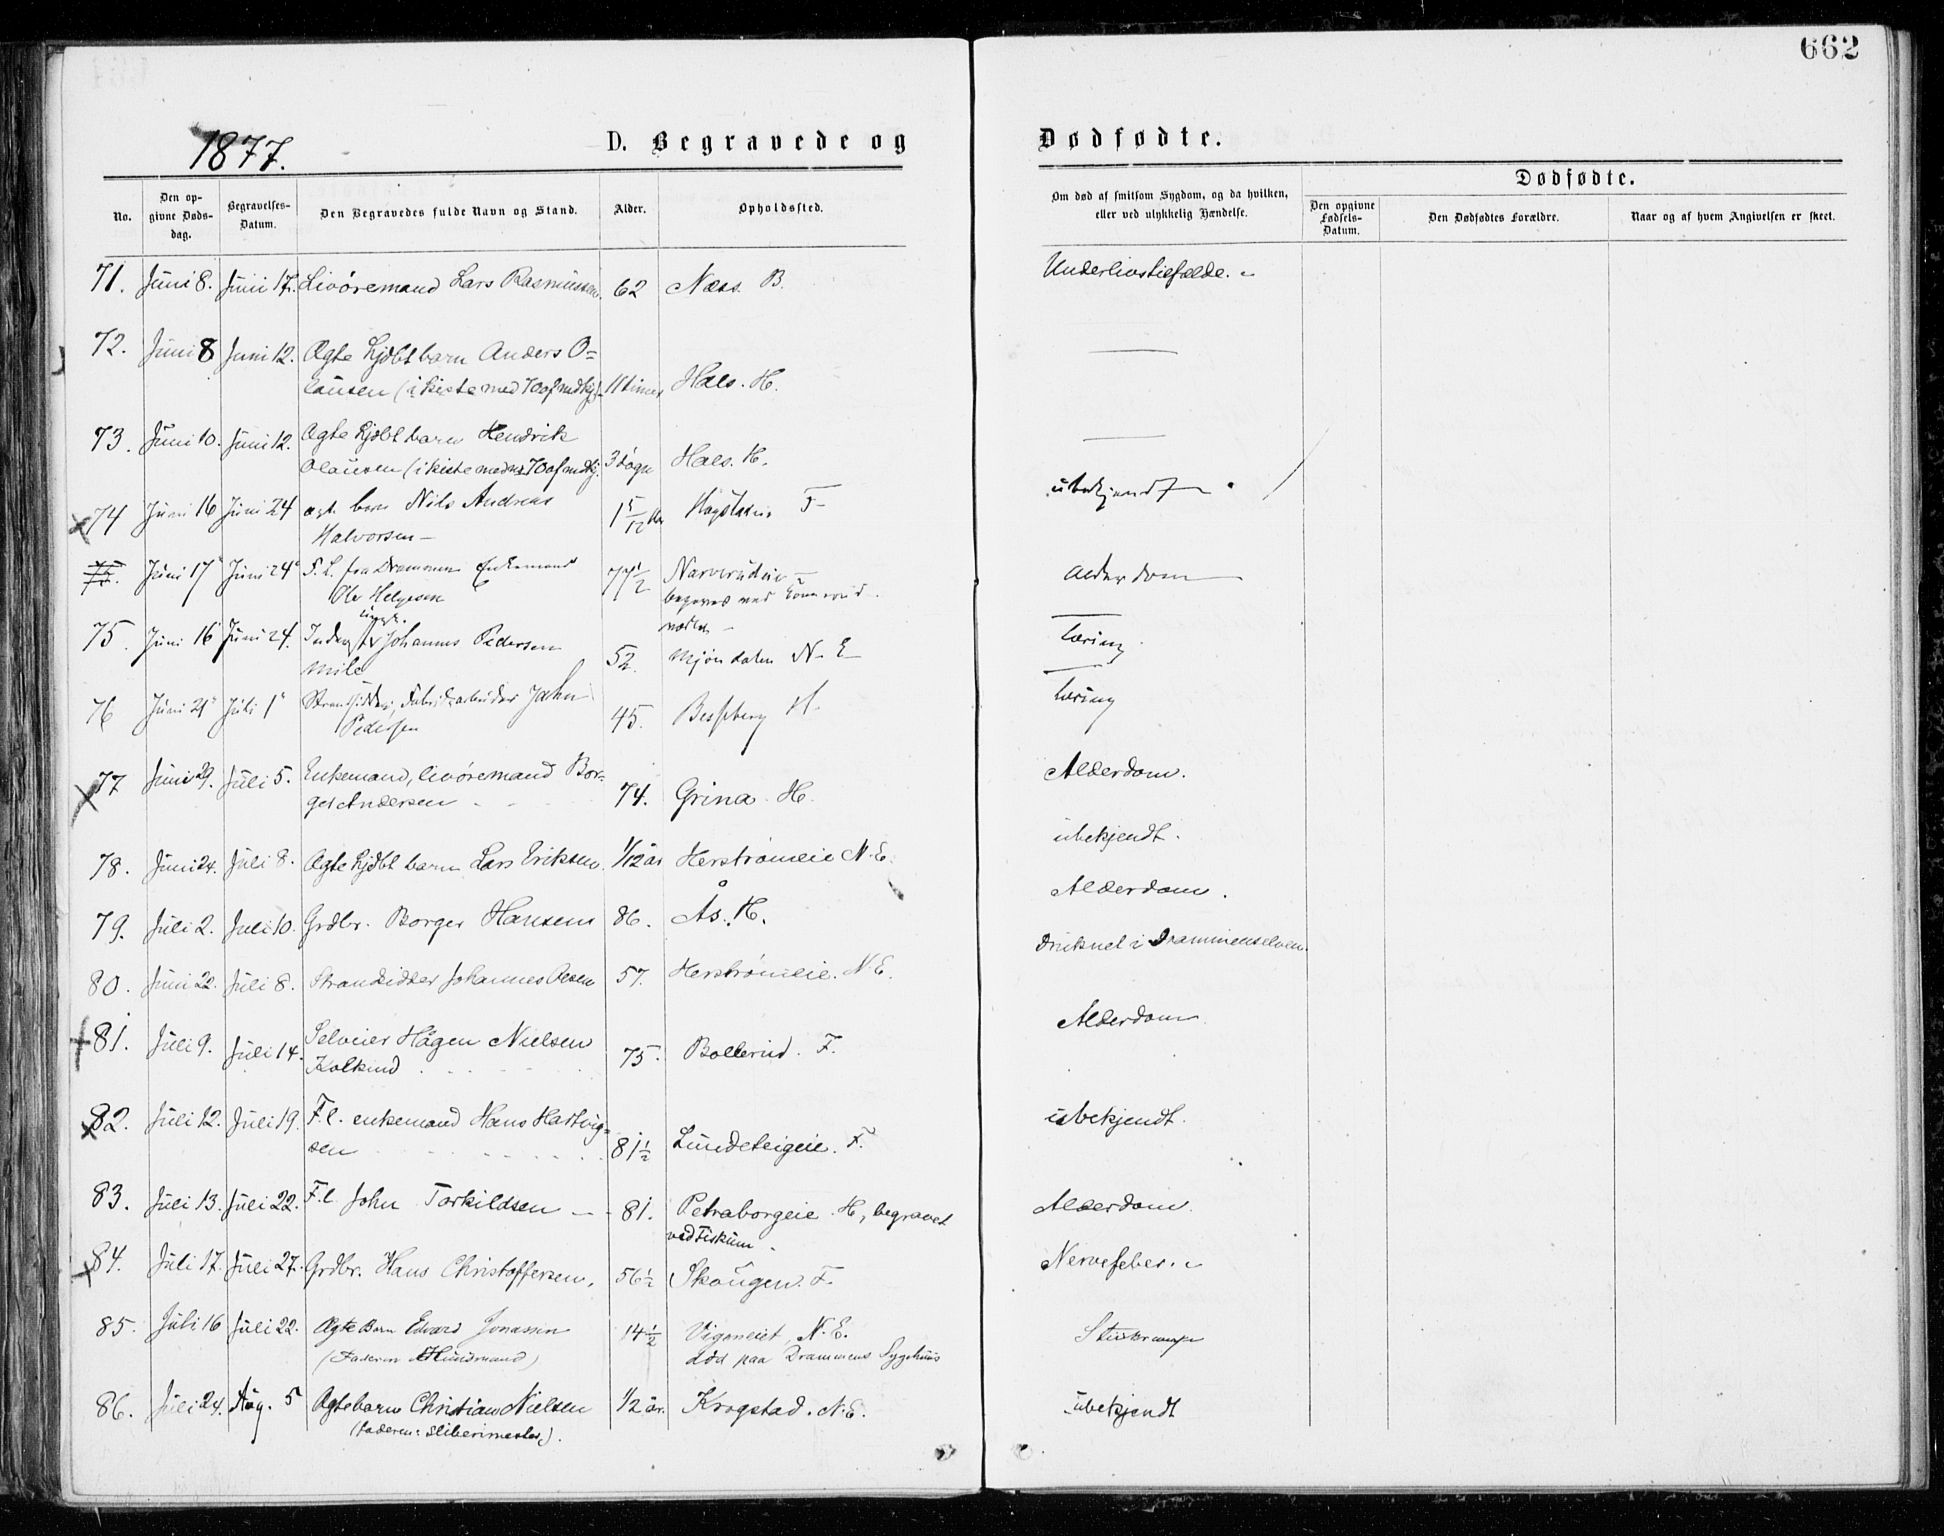 662
1877.
D. Begravede og
Dødfødte.
No.
Den op-
givne Døds-
dag.
Begravelses-
Datum.
Den Begravedes fulde Navn og Stand.
Alder.
Opholdssted.
Om død af smitsom Sygdom, og da hvilken,
eller ved ulykkelig Hændelse.
Dødfødte.
Den opgivne
Fødsels-
Datum.
Den Dødfødtes Forældre.
Naar og af hvem Angivelsen er skeet.
71. Juni 8. Juni 17. Livøremand Lars Rasmussen. 62 Næss. B. Underlivstilfælde.
72. Juni 8 Juni 12. Ægte hjdbt barn Anders O=
lausen (i kiste med 70 af mdkj). 11 timer Hals. H. —
73. Juni 10. Juni 12. Ægte hjdbt barn Hendrik
Olausen (i kiste med 70 af mdkj. 3 døgn Hals. H. —
74 Juni 16 Juni 24 ægte barn Nils Andreas
Halvorsen — 1 5/12 F — ubekjendt
75. Juni 17 Juni 24 F. L. fra Drammen Enkemand
Ole Helgesen 77 1/2 Narverudeie —
begravet ved
Alderdom
75. Juni 16 Juni 24. Johannes Pedersen
Mile 52. Mjøndalen N. E — tæring
76 Juni 21 Juli 1 Strandsidder, Fabrikarbeider John
Pedersen 45. Bessberg H. tæring
77 Juni 29. Juli 5. Enkemand, livøremand Bor=
ger Andersen 74. Grina. H. Alderdom.
78. Juni 24. Juli 8. Ægte hjdbt barn Lars Eriksen. 1/12 år Herstrømeie N. E. ubekjendt.
79. Juli 2. Juli 10. Grdbr. Borger Hansen 86. Ås. H. Alderdom.
80. Juni 22. Juli 8. Strandsidder Johannes Olsen 57. Herstrømeie. N. E. Druknet i Drammenselven.
81. Juli 9. Juli 14. Selveier Hågen Nielsen
Kolkind 75. Bollerud. F. Alderdom
82. Juli 12. Juli 19. F. l. enkemand Hans Hartvig=
sen 81 1/2 Lundeteigeie. F. ubekjendt.
83. Juli 13. Juli 22. F. l. John Torkildsen — 81. Petraborgeie. H, begravet
ved Fiskum. Alderdom.
84. Juli 17. Juli 27. Grdbr. Hans Christoffersen. 56 1/2 Skougen. F. Nervefeber.
85. Juli 16 Juli 22. Ægte Barn Edvard Jonassen
(Faderen Husmand) 14 1/2 N. E.
død paa Drammens Sygehuus
86. Juli 24. Aug. 5 Ægte barn Christian Nielsen
(faderen: Slibermester). 1/2 år. Krogstad. N. E. ubekjendt